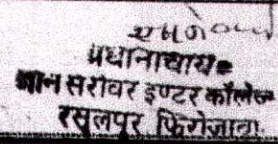 प्रधानाचार्य
मान सरोवर इण्टर कॉलेज
रसूलपुर फिरोजाबाद